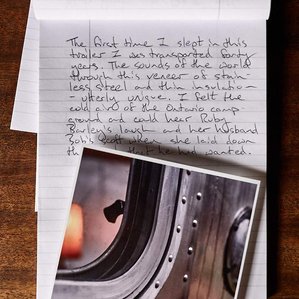 The first time I slept in this
trailer I was transported forty
years. The sounds of the world
through this veneer of stain-
less steel and thin insulatio-
- utterly unique. I felt the
cold air of the Ontario camp
ground and could hear Ruby
Barlen's laugh and her husband
Bob's when she laid down
th that he had wanted.